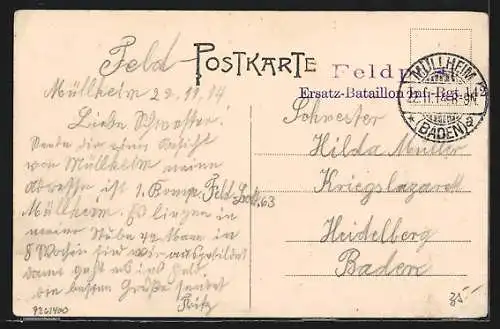 Feld
POSTKARTE
Feldpost
Ersatz-Bataillon Inf.-Rgt. 14
MÜLLHEIM
22.11.14 8-9N
* (BADEN) a
Müllheim 22.11.14
Liebe Schwester!
Sende dir eine Ansicht
von Müllheim meine
Adresse ist 1. Komp. Feld-Bat. 63
Müllheim. Es liegen in
meiner Stube 42 Mann in
8 Wochen sind wir ausgebildet
dann geht es ins Feld.
die besten Grüße sendet
Fritz
Schwester
Hilda Müller
Kriegslazarett
Heidelberg
Baden
9261400
35-